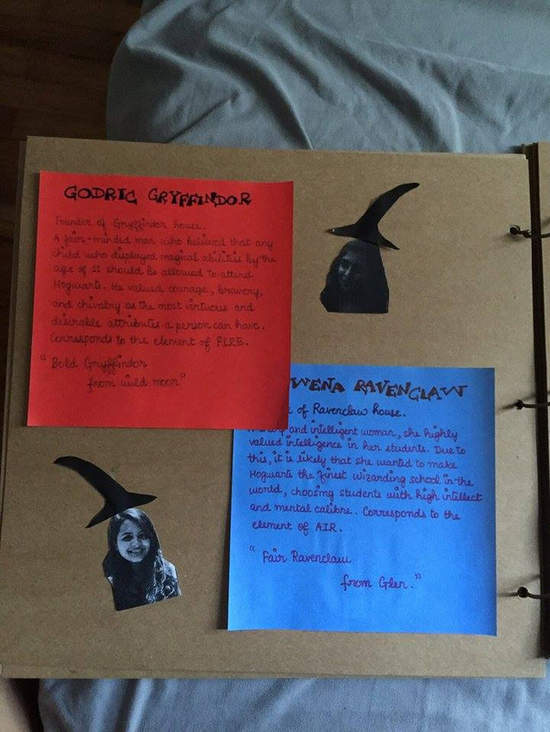 GODRIC GRYFFINDOR
Founder of Gryffindor house.
A fair-minded man who believed that any
child who displayed magical abilities by the
age of 11 should be allowed to attend
Hogwarts. He valued courage, bravery,
and chivalry as the most virtuous and
desirable attributes a person can have.
Corresponds to the element of FIRE.
" Bold Gryffindor
from wild moor"
WENA RAVENCLAW
of Ravenclaw house.
and intelligent woman, she highly
valued intelligence in her students. Due to
this, it is likely that she wanted to make
Hogwarts the finest wizarding school in the
world, choosing students with high intellect
and mental calibre. Corresponds to the
element of AIR.
" Fair Ravenclaw
from Glen."